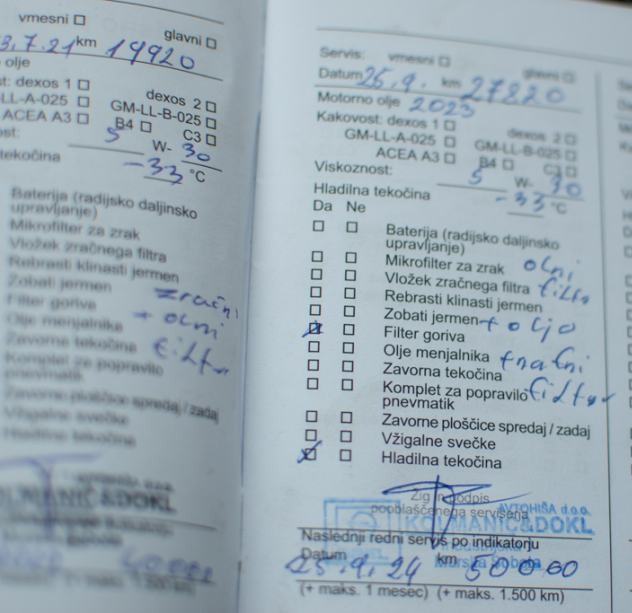 vmesni ☐
glavni ☐
3.7.21 km 19920
olje
st: dexos 1 ☐ dexos 2 ☐
-LL-A-025 ☐ GM-LL-B-025 ☐
ACEA A3 ☐ B4 ☐ C3 ☐
ost: 5 W- 30
tekočina -33 °C
Baterija (radijsko daljinsko
upravljanje)
Mikrofilter za zrak
Vložek zračnega filtra
Rebrasti klinasti jermen
Zobati jermen zračni
Filter goriva + olni
Olje menjalnika filter
Zavorna tekočina
Komplet za popravilo
pnevmatik
Zavorne ploščice spredaj / zadaj
Vžigalne svečke
Hladilna tekočina
KOLMANIČ&DOKL
Servis: vmesni ☐ glavni ☐
Datum 25.9. km 27820
Motorno olje 2023
Kakovost: dexos 1 ☐ dexos 2 ☐
GM-LL-A-025 ☐ GM-LL-B-025 ☐
ACEA A3 ☐ B4 ☐ C3 ☐
Viskoznost: 5 W- 30
Hladilna tekočina -33 °C
Da Ne
☐ ☐ Baterija (radijsko daljinsko
upravljanje)
☐ ☐ Mikrofilter za zrak olni
☐ ☐ Vložek zračnega filtra filter
☐ ☐ Rebrasti klinasti jermen
☐ ☐ Zobati jermen + oljo
☒ ☐ Filter goriva
☐ ☐ Olje menjalnika
☐ ☐ Zavorna tekočina
☐ ☐ Komplet za popravilo filter
pnevmatik
☐ ☐ Zavorne ploščice spredaj / zadaj
☐ ☐ Vžigalne svečke
☒ ☐ Hladilna tekočina
Žig in podpis
pooblaščenega serviserja
AVTOHIŠA d.o.o.
KOLMANIČ&DOKL
Naslednji redni servis po indikatorju
Murska Sobota
Datum 25.9.24 km 50000
(+ maks. 1 mesec) (+ maks. 1.500 km)